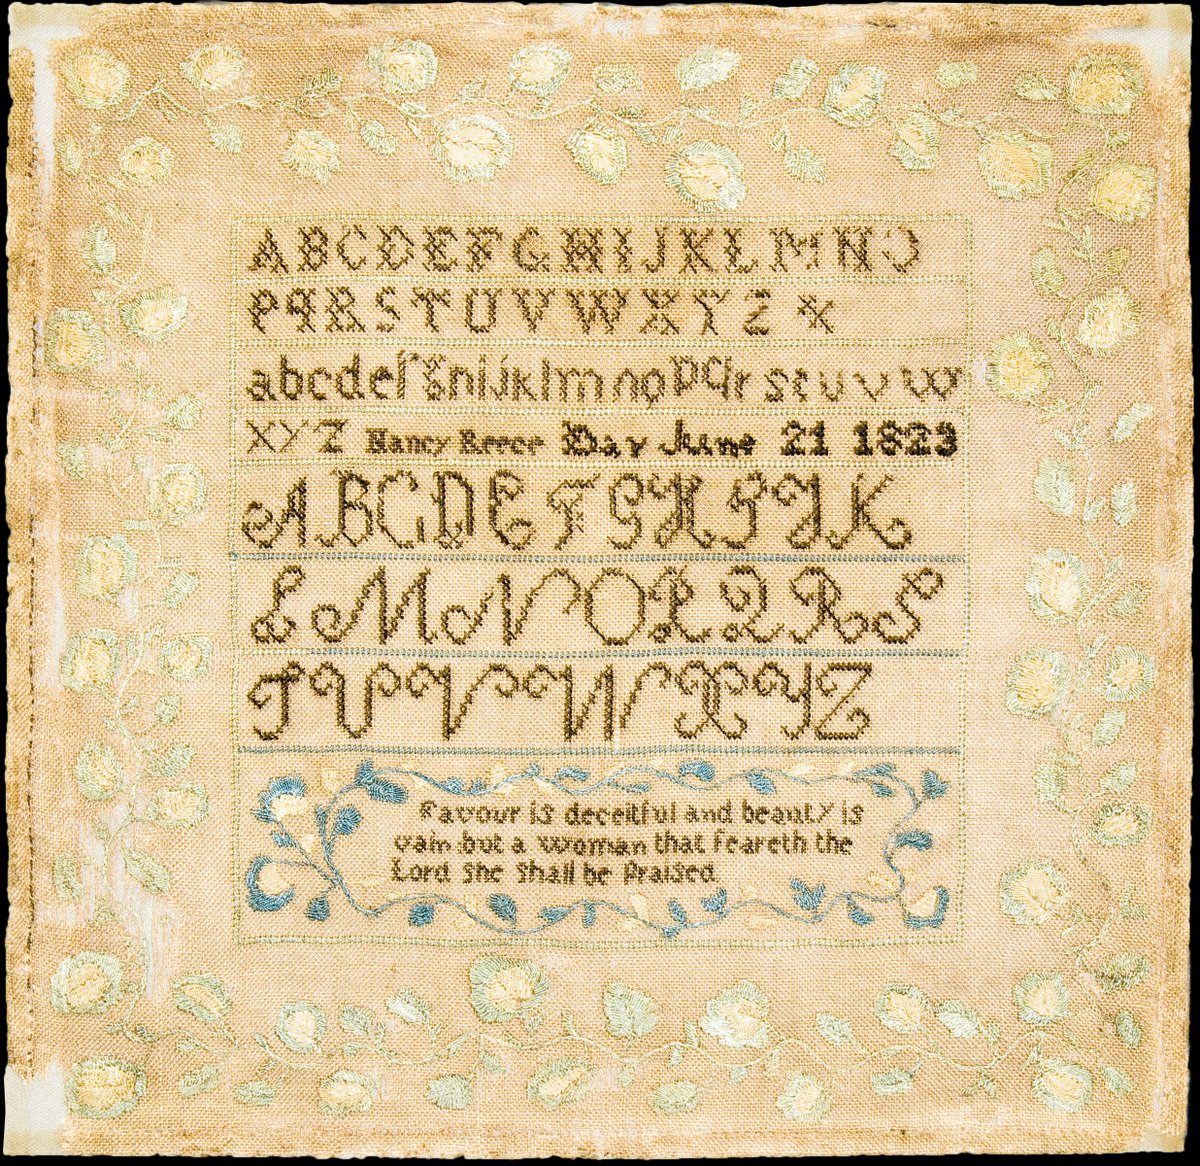 ABCDEFGHIJKLMNO
PQRSTUVWXYZ &
abcdefghijklmnopqrstuvw
XYZ Nancy Reece Day June 21 1823
ABCDEFGHIJK
LMNOPQRS
TUVWXYZ
Favour is deceitful and beauty is
vain but a woman that feareth the
Lord she shall be Praised